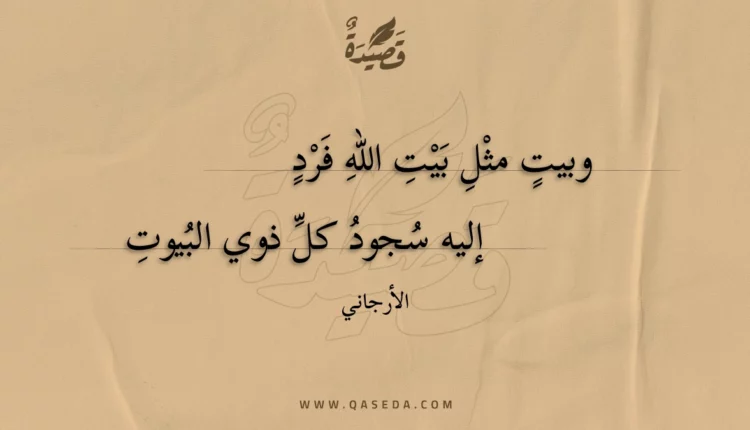 قَصِيْدَةٌ
وبيتٍ مثْلِ بَيْتِ اللهِ فَرْدٍ
إليه سُجودُ كلِّ ذوي البُيوتِ
الأرجاني
WWW.QASEDA.COM